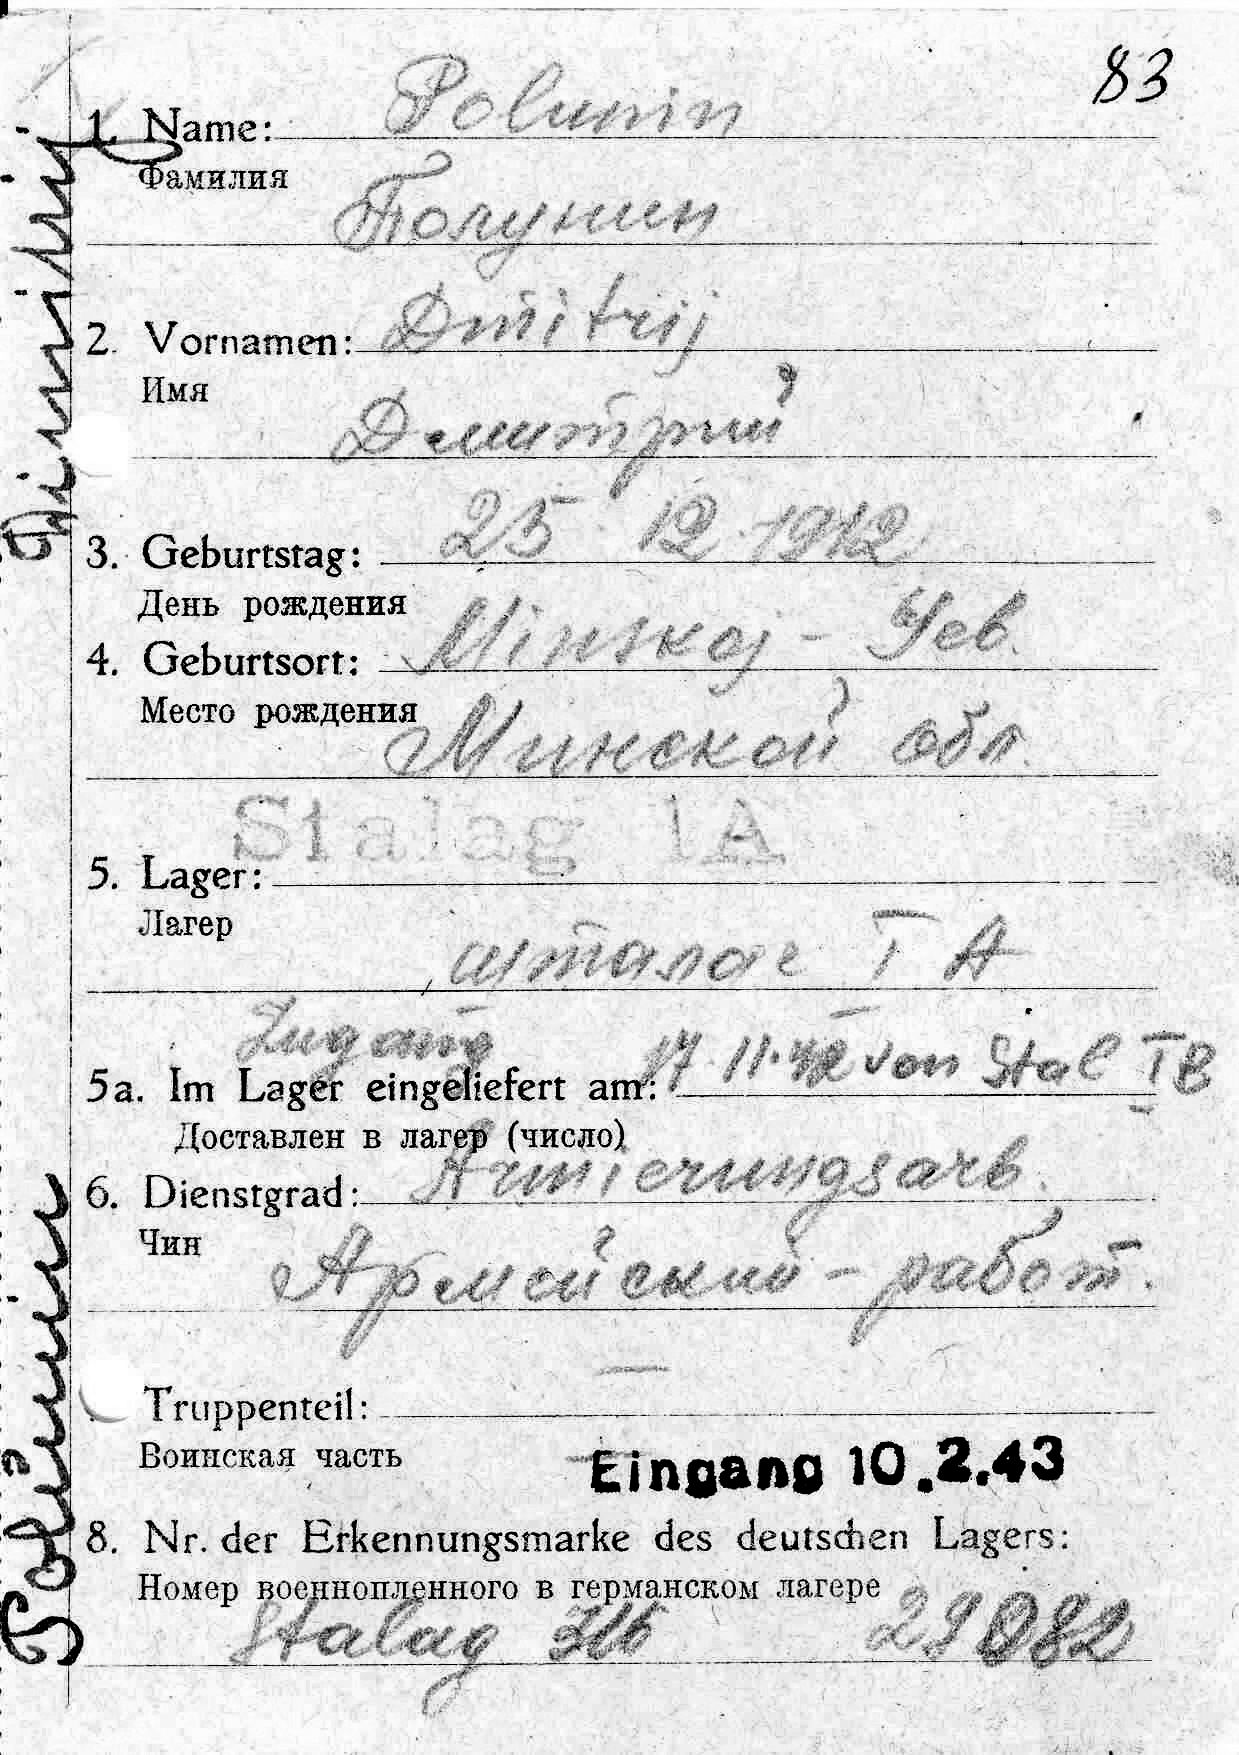 83
1. Name: Polunin
Фамилия
Полунин
2. Vornamen: Dmitrij
Имя
Дмитрий
3. Geburtstag: 25 12. 1912
День рождения
4. Geburtsort: Minskoj - Geb.
Место рождения
Минской обл.
Stalag IA
5. Lager:
Лагер
шталаг I A
Zugang 17.11.42 von Stal IB
5a. Im Lager eingeliefert am:
Доставлен в лагер (число)
6. Dienstgrad: Armierungsarb.
Чин
Армейский - работ.
Truppenteil: —
Воинская часть
Eingang 10.2.43
8. Nr. der Erkennungsmarke des deutschen Lagers:
Номер военнопленного в германском лагере
Stalag 29082
Polunin Dimitrij